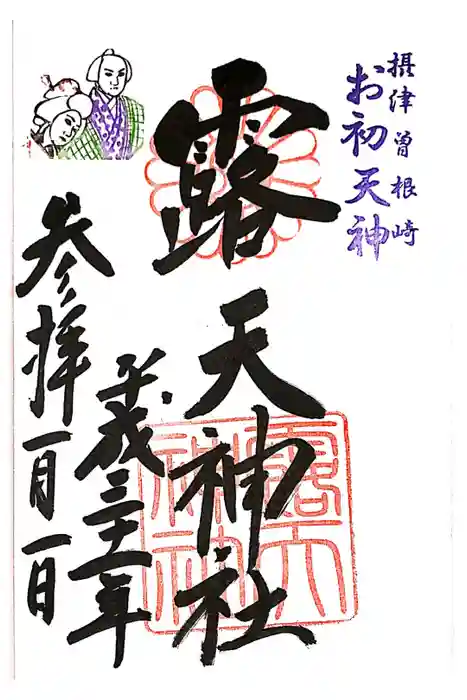 摂津曽根崎
お初天神
露天神社
平成三十一年
参拝一月一日
露天神社